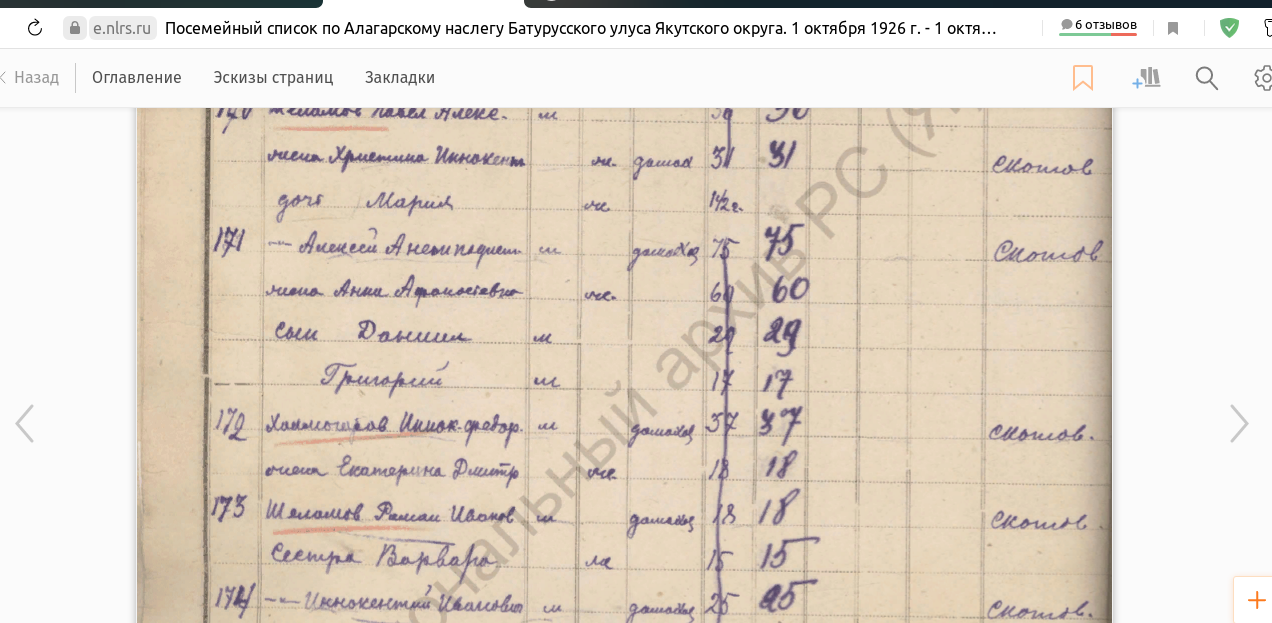 e.nlrs.ru Посемейный список по Алагарскому наслегу Батурусского улуса Якутского округа. 1 октября 1926 г. - 1 октя… 6 отзывов
Назад Оглавление Эскизы страниц Закладки
170 Шеломов Павел Алекс. м 30
жена Христина Иннокент ж. домох 31 31 скотов
дочь Мария ж 1 1/2 г.
171 -"- Алексей м домохоз 75 75 скотов
жена Анна ж. 60 60
сын Даниил м 29 29
Григорий м 17 17
172 Холмогоров Иннок. Федор. м домохоз 37 37 скотов.
жена Екатерина Дмитр ж. 18 18
173 Шеломов Роман Иванов м домохоз 18 18 скотов.
сестра Варвара 15 15
174 -"- Иннокентий Иванович м домохоз 25 25 скотов.